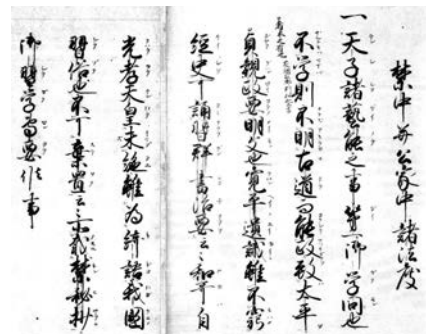 禁中并公家中諸法度
一天子諸藝能之事第一御学問也
不学則不明古道而能政致太平
貞観政要明文也寛平遺誡雖不窮
経史可誦習群書治要云々和哥自
光孝天皇未絶雖為綺語我國
習俗也不可棄置云々所載禁秘抄
御習学専要候事